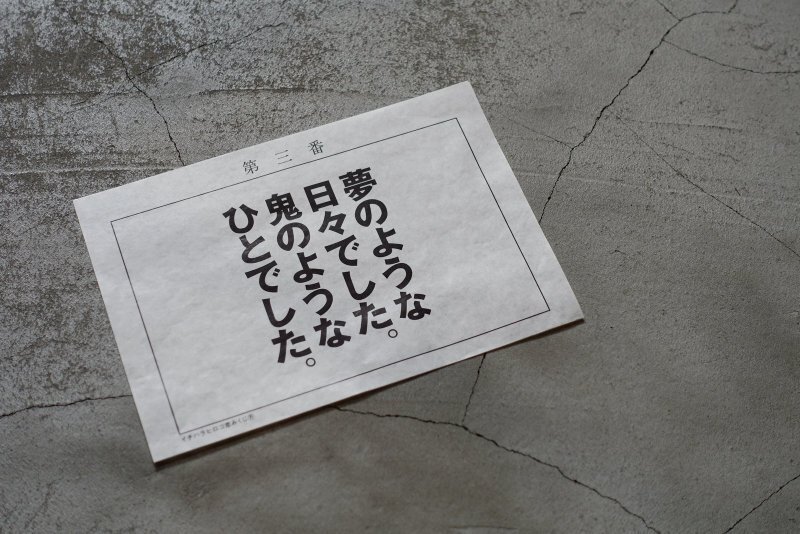 第三番
夢のような
日々でした。
鬼のような
ひとでした。
イチハラヒロコ恋みくじ®